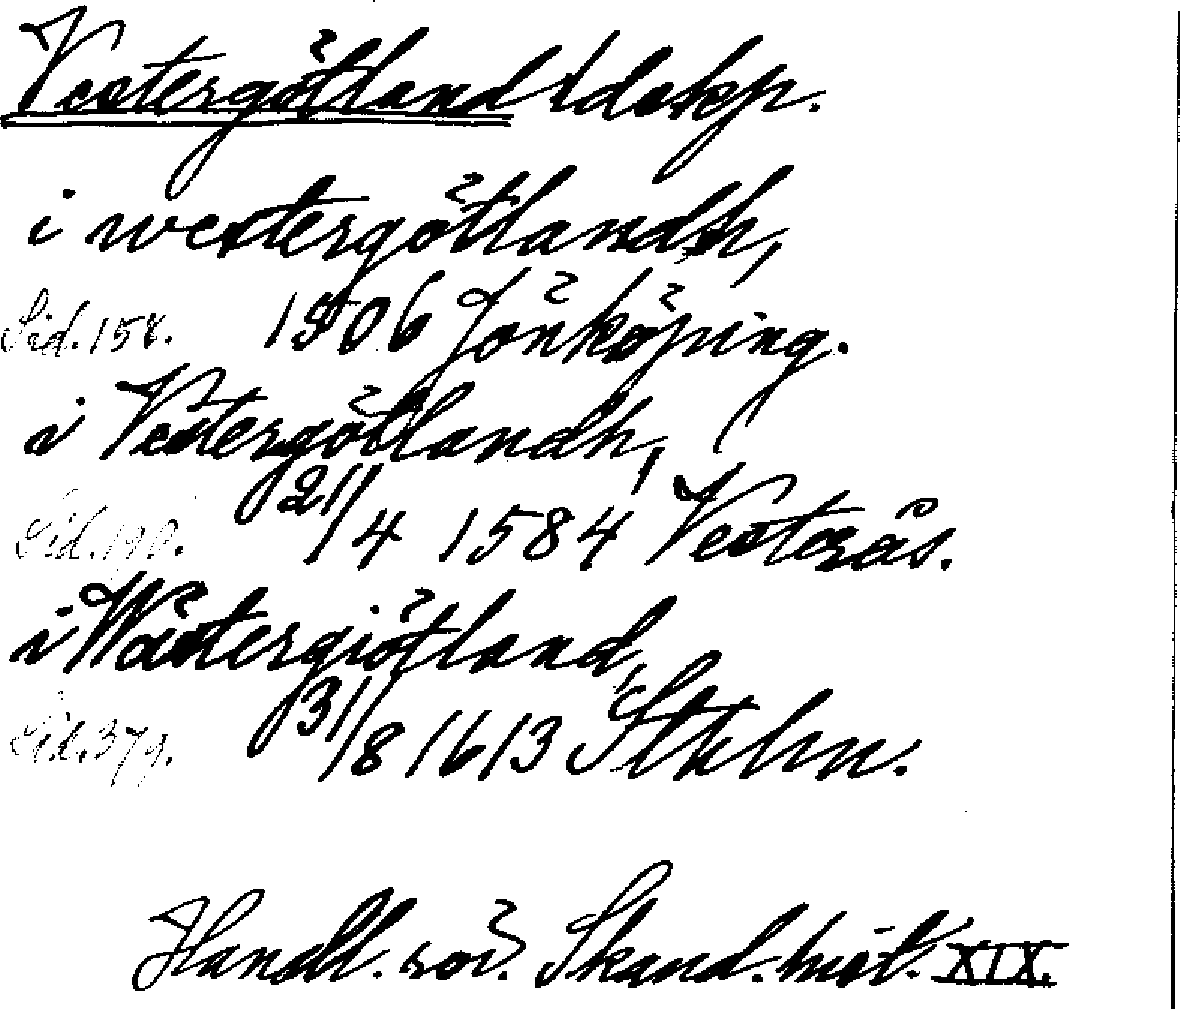 Vestergötland ldskp.
i westergötlandh,
Sid. 158. 1506 Jönköping.
i Vestergötlandh,
Sid. 190. 21/4 1584 Vesterås.
i Wästergiötland,
Sid. 379. 31/8 1613 Stklm.
Handl. rör. Skand. hist. XIX.